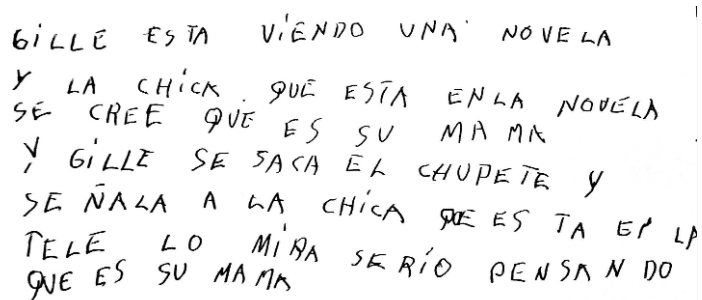 GiLLE ESTA ViENDO UNA NOVELA
Y LA CHiCA QUE ESTA ENLA NOVELA
SE CREE QUE ES SU MAMA
Y GiLLE SE SACA EL CHUPETE Y
SEÑALA A LA CHiCA QUE ES TA EN LA
TELE LO MiRA SERiO PENSANDO
QUE ES SU MAMA